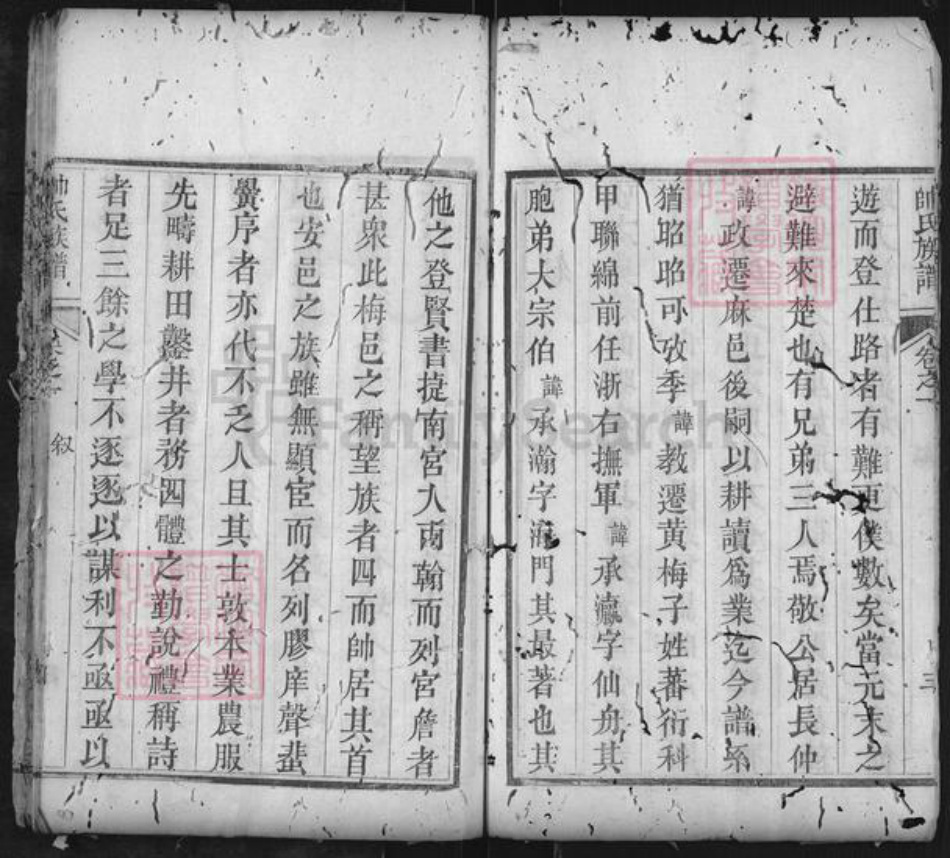 帥氏族譜 卷之一 三
遊而登仕路者有難更僕數矣當元末之
避難來楚也有兄弟三人焉敬公居長仲
諱政遷麻邑後嗣以耕讀爲業迄今譜系
猶昭昭可攷季諱教遷黃梅子姓蕃衍科
甲聯綿前任浙右撫軍諱承瀛字仙舟其
胞弟大宗伯諱承瀚字海門其最著也其
他之登賢書捷南宮入內翰而列宮詹者
甚衆此梅邑之稱望族者四而帥居其首
也安邑之族雖無顯宦而名列膠庠聲蜚
黌序者亦代不乏人且其士敦本業農服
先疇耕田鑿井者務四體之勤說禮稱詩
者足三餘之學不逐逐以謀利不亟亟以
帥氏族譜 卷之一 叙
FamilySearch